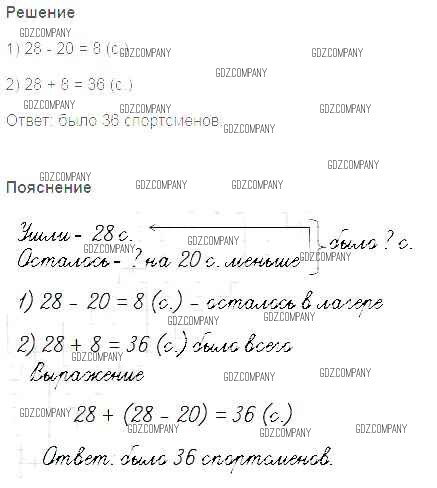 Решение
GDZCOMPANY
1) 28 - 20 = 8 (с.)
GDZCOMPANY GDZCOMPANY
GDZCOMPANY
2) 28 + 8 = 36 (с.)
GDZCOMPANY GDZCOMPANY GDZCOMPANY
Ответ: было 36 спортсменов.
GDZCOMPANY
GDZCOMPANY
GDZCOMPANY
Пояснение GDZCOMPANY GDZCOMPANY
Ушли - 28 с.
GDZCOMPANY GDZCOMPANY было ? с.
Осталось - ? на 20 с. меньше GDZCOMPANY
1) 28 - 20 = 8 (с.) - осталось в лагере
GDZCOMPANY GDZCOMPANY
2) 28 + 8 = 36 (с.) было всего
GDZCOMPANY
Выражение
GDZCOMPANY GDZCOMPANY
28 + (28 - 20) = 36 (с.)
GDZCOMPANY GDZCOMPANY GDZCOMPANY GDZCOMPANY GDZCOMPANY
Ответ: было 36 спортсменов.